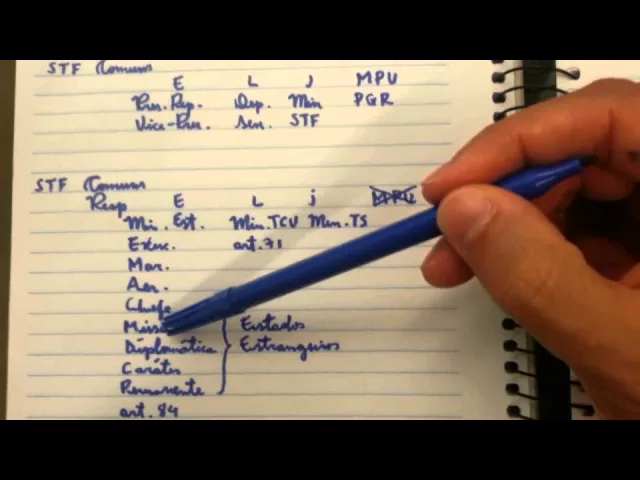 STF Comuns
E L J MPU
Pres. Rep. Dep. Min PGR
Vice-Pres. Sen. STF
STF Comuns
Resp E L j MPU
Min. Est. Min. TCU Mem. TS
Exérc. art. 71
Mar.
Aer.
Chefe
Missão Estados
Diplomática Estrangeiros
Caráter
Permanente
art. 84